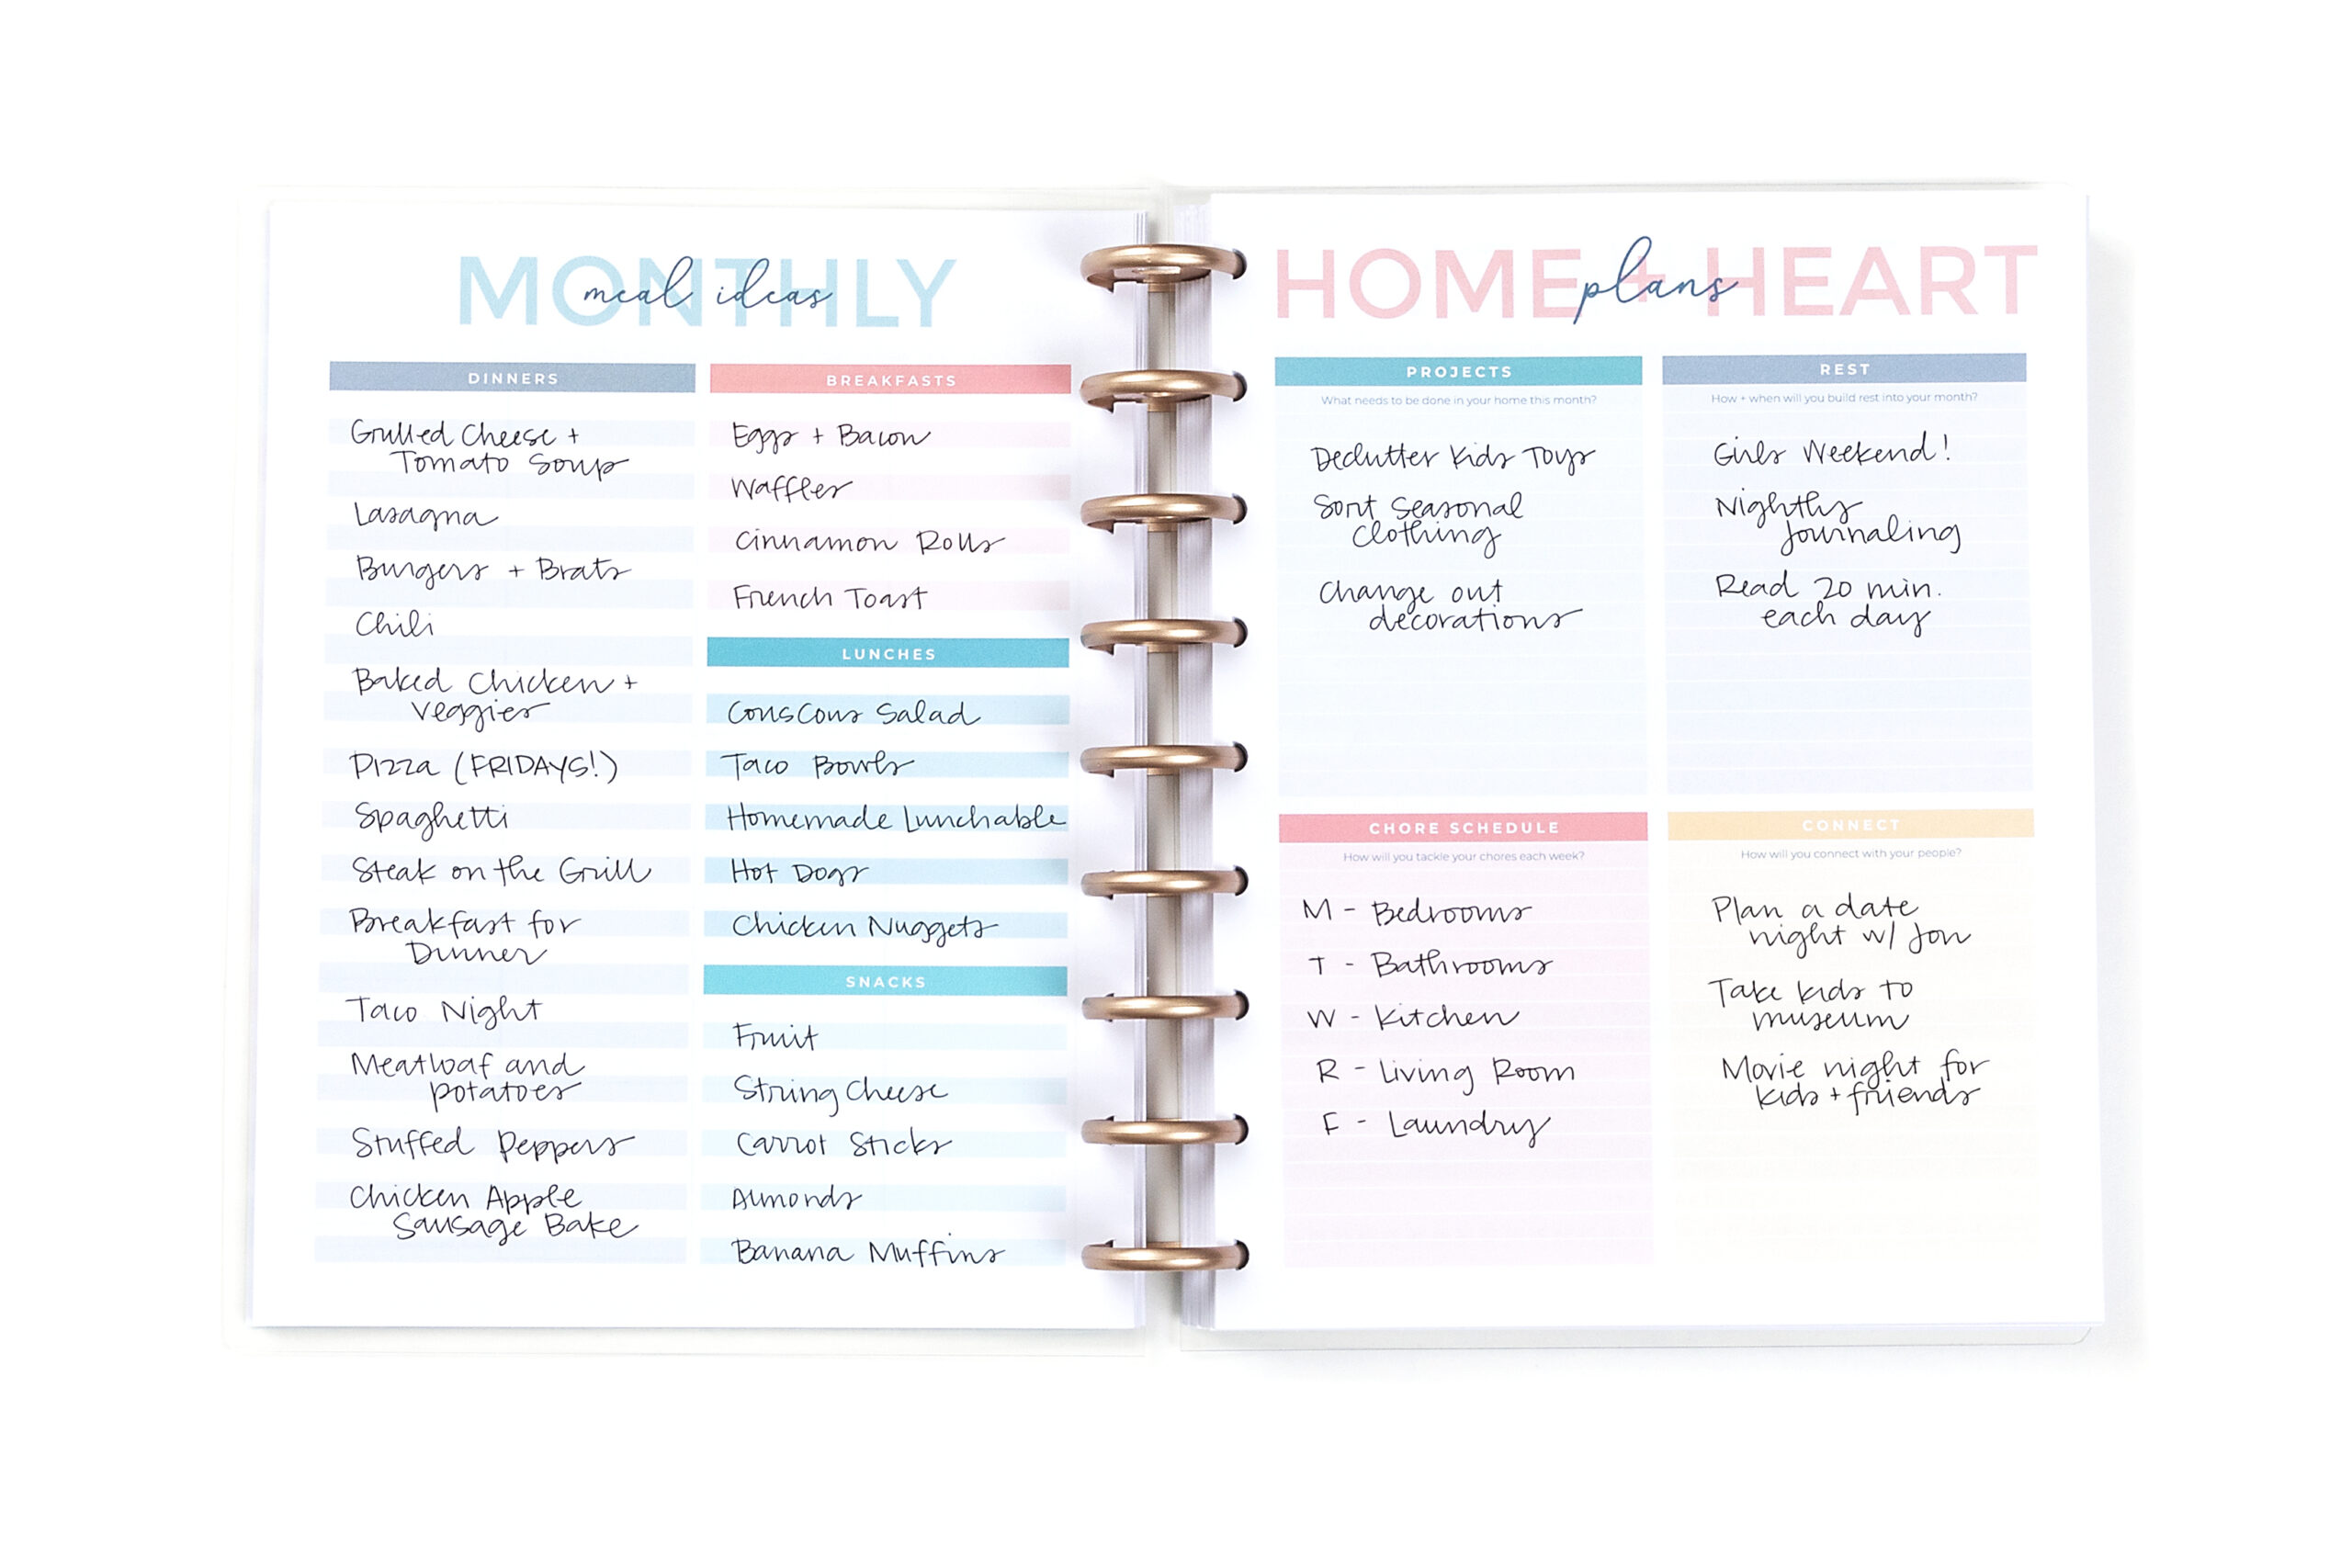 MONTHLY
meal ideas
DINNERS
Grilled Cheese +
Tomato Soup
Lasagna
Burgers + Brats
Chili
Baked Chicken +
Veggies
Pizza (FRIDAYS!)
Spaghetti
Steak on the Grill
Breakfast for
Dinner
Taco Night
Meatloaf and
potatoes
Stuffed Peppers
Chicken Apple
Sausage Bake
BREAKFASTS
Eggs + Bacon
Waffles
Cinnamon Rolls
French Toast
LUNCHES
Couscous Salad
Taco Bowls
Homemade Lunchable
Hot Dogs
Chicken Nuggets
SNACKS
Fruit
String Cheese
Carrot Sticks
Almonds
Banana Muffins
HOME + HEART
plans
PROJECTS
What needs to be done in your home this month?
Declutter Kids Toys
Sort Seasonal
Clothing
Change out
decorations
REST
How + when will you build rest into your month?
Girls Weekend!
Nightly
Journaling
Read 20 min.
each day
CHORE SCHEDULE
How will you tackle your chores each week?
M - Bedrooms
T - Bathrooms
W - Kitchen
R - Living Room
F - Laundry
CONNECT
How will you connect with your people?
Plan a date
night w/ Jon
Take kids to
museum
Movie night for
kids + friends